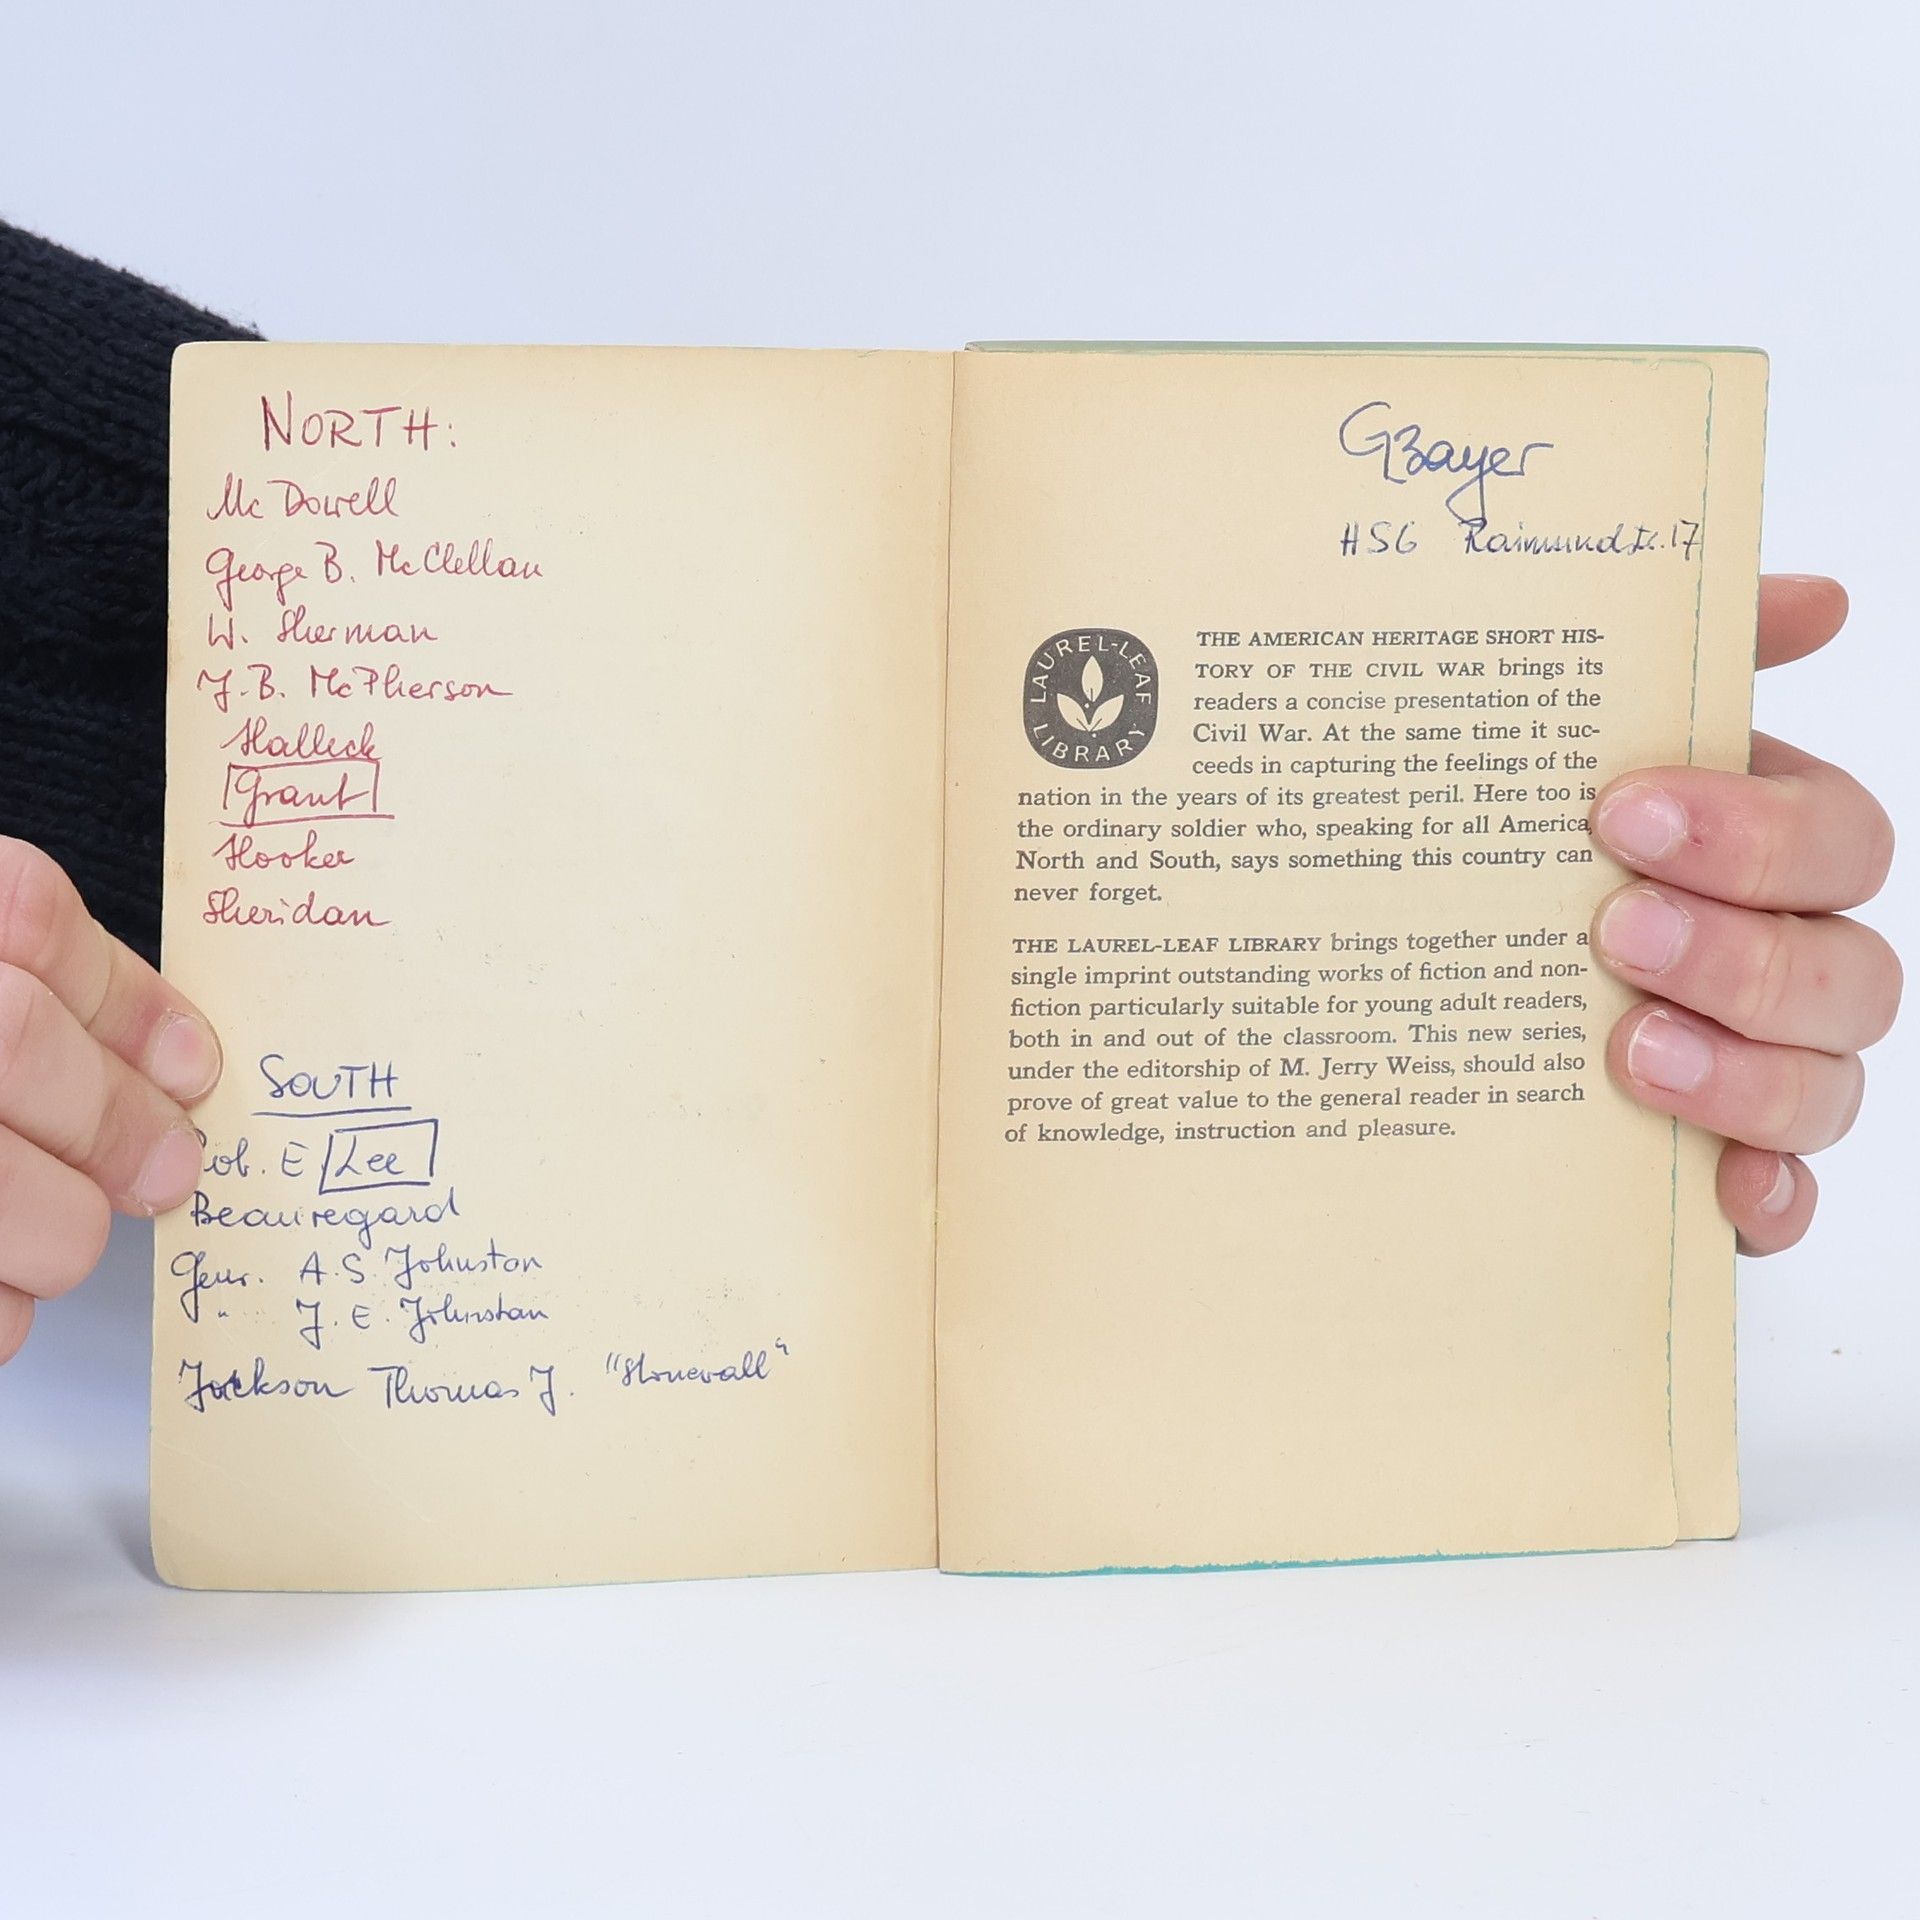 NORTH:
McDowell
George B. McClellan
W. Sherman
J.B. McPherson
Halleck
Grant
Hooker
Sheridan
SOUTH
Rob. E Lee
Beauregard
Genr. A.S. Johnston
" J. E. Johnston
Jackson Thomas J. "Stonewall"
GBayer
HSG Raimundstr. 17
LAUREL-LEAF LIBRARY
THE AMERICAN HERITAGE SHORT HIS-
TORY OF THE CIVIL WAR brings its
readers a concise presentation of the
Civil War. At the same time it suc-
ceeds in capturing the feelings of the
nation in the years of its greatest peril. Here too is
the ordinary soldier who, speaking for all America,
North and South, says something this country can
never forget.
THE LAUREL-LEAF LIBRARY brings together under a
single imprint outstanding works of fiction and non-
fiction particularly suitable for young adult readers,
both in and out of the classroom. This new series,
under the editorship of M. Jerry Weiss, should also
prove of great value to the general reader in search
of knowledge, instruction and pleasure.